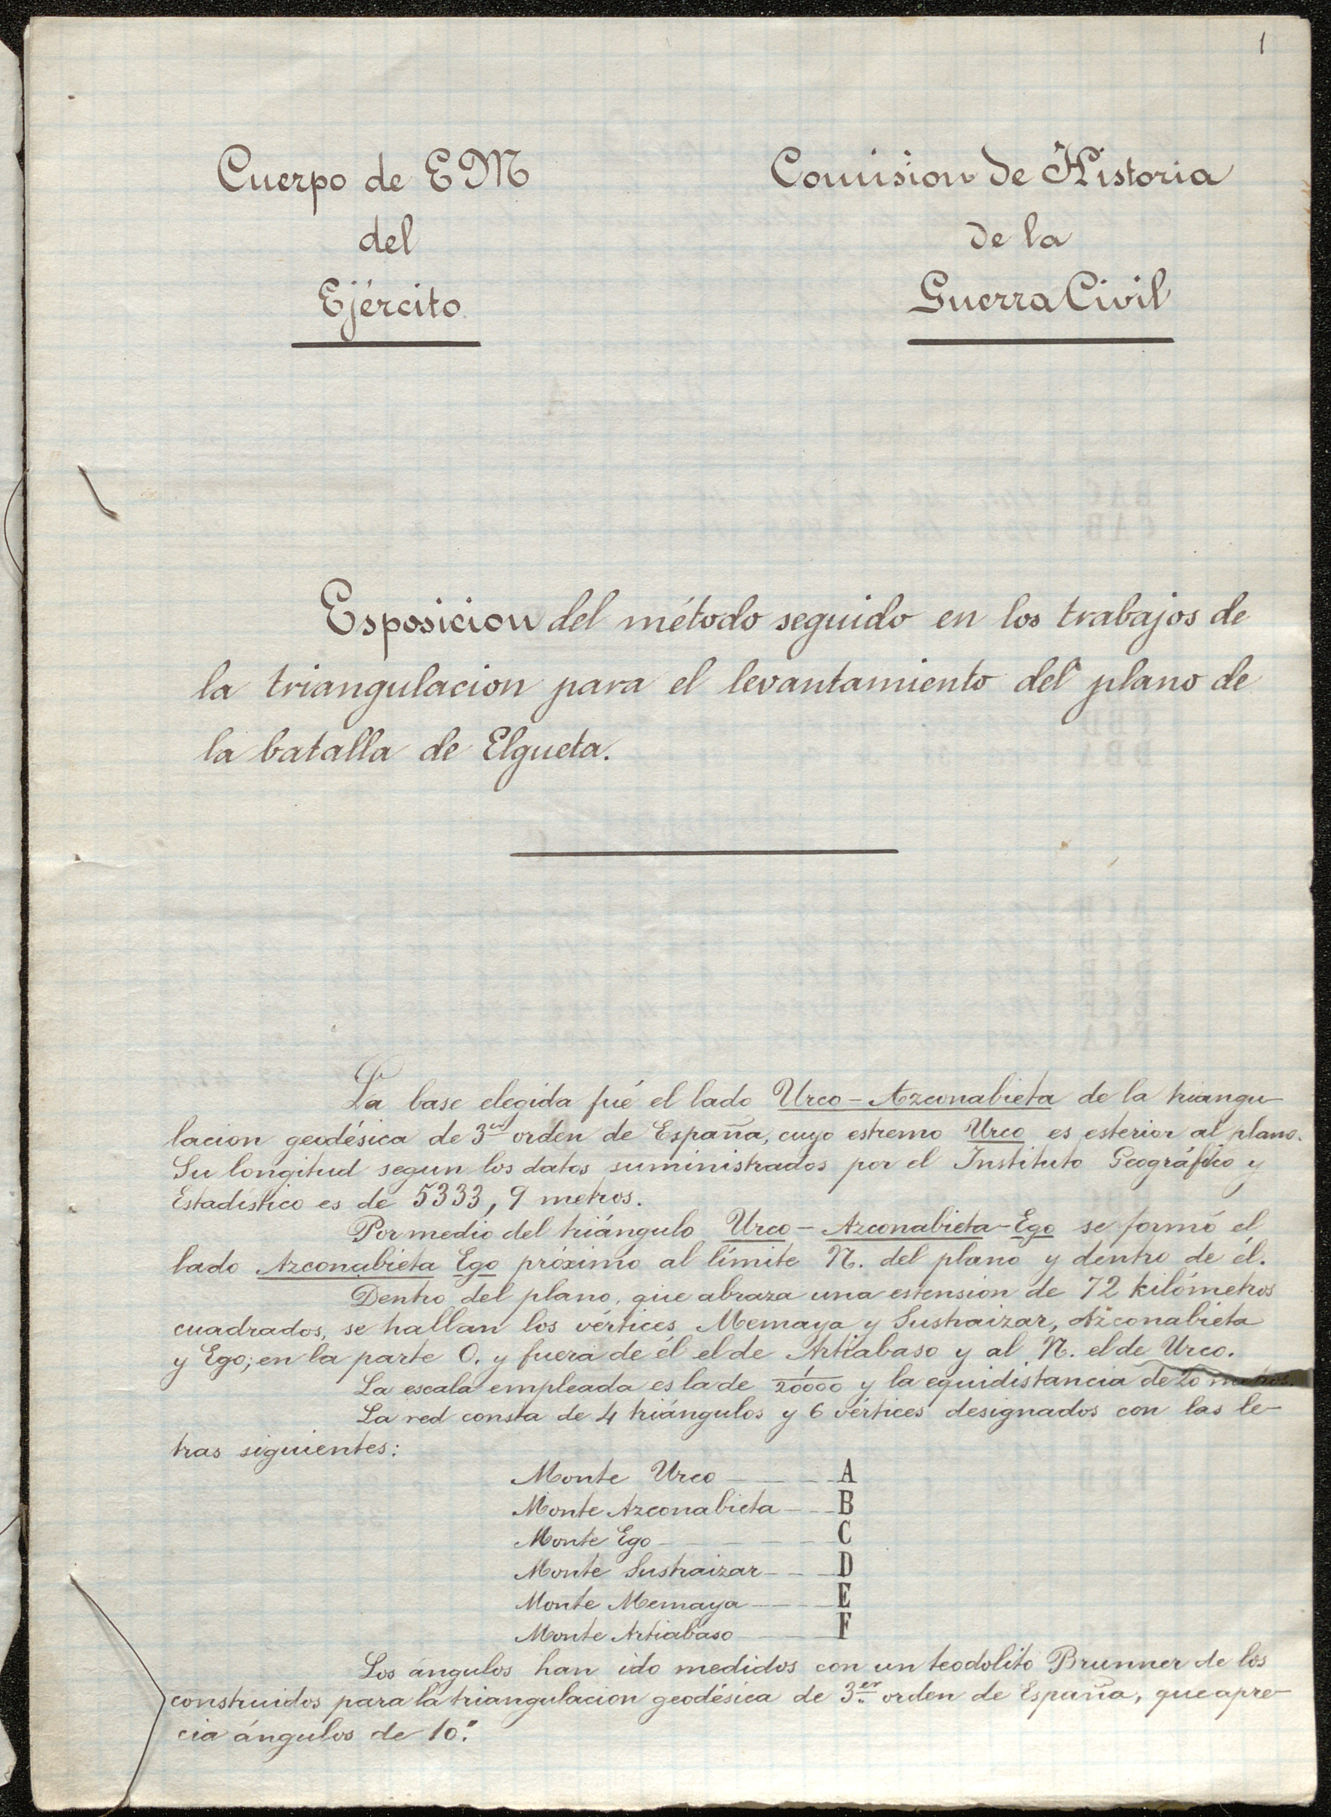 1
Cuerpo de EM
del
Ejército
Comision de Historia
de la
Guerra Civil
Esposicion del método seguido en los trabajos de
la triangulacion para el levantamiento del plano de
la batalla de Elgueta.
La base elegida fué el lado Urco - Azconabieta de la triangu-
lacion geodésica de 3er orden de España, cuyo estremo Urco es esterior al plano.
Su longitud segun los datos suministrados por el Instituto Geográfico y
Estadístico es de 5333,9 metros.
Por medio del triángulo Urco - Azconabieta - Ego se formó el
lado Azconabieta Ego próximo al límite N. del plano y dentro de él.
Dentro del plano, que abraza una estension de 72 kilómetros
cuadrados, se hallan los vértices Memaya y Sustraizar, Azconabieta
y Ego; en la parte O. y fuera de él el de Artiabaso y al N. el de Urco.
La escala empleada es la de 1/20000 y la equidistancia de 20 metros.
La red consta de 4 triángulos y 6 vértices designados con las le-
tras siguientes:
Monte Urco - - - A
Monte Azconabieta - - B
Monte Ego - - - - C
Monte Sustraizar - - - D
Monte Memaya - - - E
Monte Artiabaso - - - F
Los ángulos han ido medidos con un teodolito Brunner de los
construidos para la triangulacion geodésica de 3er orden de España, que apre-
cia ángulos de 10".